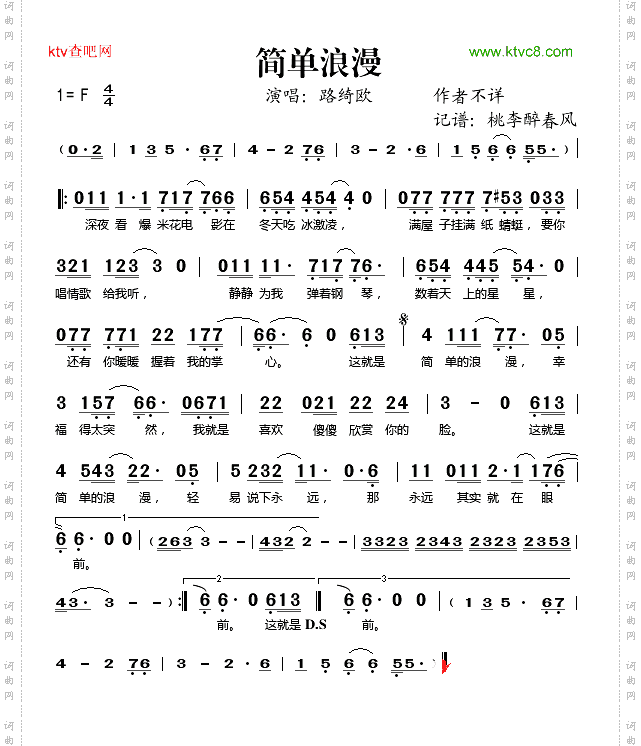 ktv查吧网
www.ktvc8.com
简单浪漫
1= F 4/4
演唱：路绮欧
作者不详
记谱：桃李醉春风
( 0·2 | 1 3 5 · 67 | 4 - 2 76 | 3 - 2 ·6 | 1 5 6 6 55· ) |
‖: 011 1·1 717 766 | 654 454 4 0 | 077 777 7#53 033 |
深夜 看 爆 米花电 影在 冬天吃 冰激凌， 满屋 子挂满 纸 蜻蜓，要你
321 123 3 0 | 011 11· 717 76· | 654 445 54· 0 |
唱情歌 给我听， 静静 为我 弹着钢 琴， 数着天 上的星 星，
077 771 22 177 | 66· 6 0 613 | 4 111 77· 05 |
还有 你暖暖 握着 我的掌 心。 这就是 简 单的浪 漫，幸
3 157 66· 0671 | 22 021 22 24 | 3 - 0 613 |
福 得太突 然，我就是 喜欢 傻傻 欣赏 你的 脸。 这就是
4 543 22· 05 | 5 232 11· 0·6 | 11 011 2·1 176 |
简 单的浪 漫，轻 易 说下永 远，那 永远 其实 就 在 眼
1
6 6· 0 0 | ( 263 3 - - | 432 2 - - | 3323 2343 2323 2353 |
前。
2
3
43· 3 - - ) :‖ 6 6· 0 613 ‖ 6 6· 0 0 | ( 1 3 5 · 67 |
前。 这就是 D.S 前。
4 - 2 76 | 3 - 2 · 6 | 1 5 6 6 55· ‖
词曲网
词曲网
词曲网
词曲网
词曲网
词曲网
词曲网
词曲网
词曲网
词曲网
词曲网
词曲网